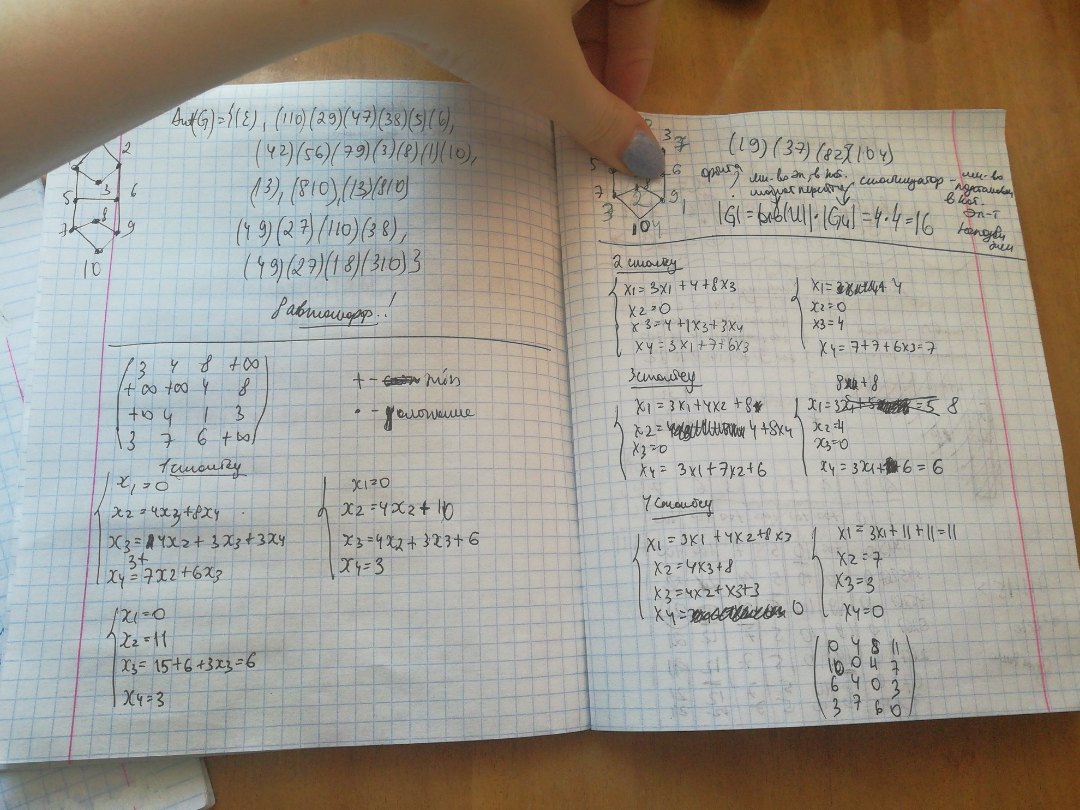 Aut(G)={(ε), (110)(29)(47)(38)(5)(6),
(42)(56)(79)(3)(8)(1)(10),
(13), (810), (13)(810)
(49)(27)(110)(38),
(49)(27)(18)(310)}
8 автоморф..!
2
3
5 6
8
7 9
10
3 4 8 +∞
+∞ +∞ 4 8
+∞ 4 1 3
3 7 6 +∞
+ - min
• - умножение
1 столбу
x1=0
x2=4x3+8x4
x3=4x2+3x3+3x4
3+
x4=7x2+6x3
x1=0
x2=4x2+10
x3=4x2+3x3+6
x4=3
x1=0
x2=11
x3=15+6+3x3=6
x4=3
3 7
5 6
7 9
3 2 1
10 4
(19)(37)(82)(104)
орбита
мн-во эл. в кот.
стабилизатор - мн-во
подстановок
в кот.
эл-т
|G|=|orb(4)|·|G4|=4·4=16
2 столбу
x1=3x1+4+8x3
x2=0
x3=4+1x3+3x4
x4=3x1+7+6x3
x1=4
x2=0
x3=4
x4=7+7+6x3=7
3 столбу
x1=3x1+4x2+8
x2=4+8x4
x3=0
x4=3x1+7x2+6
+8
x1=8
x2=4
x3=0
x4=3x1+6=6
4 столбу
x1=3x1+4x2+8x3
x2=4x3+8
x3=4x2+x3+3
x4=0
x1=3x1+11+11=11
x2=7
x3=3
x4=0
0 4 8 11
10 0 4 7
6 4 0 3
3 7 6 0